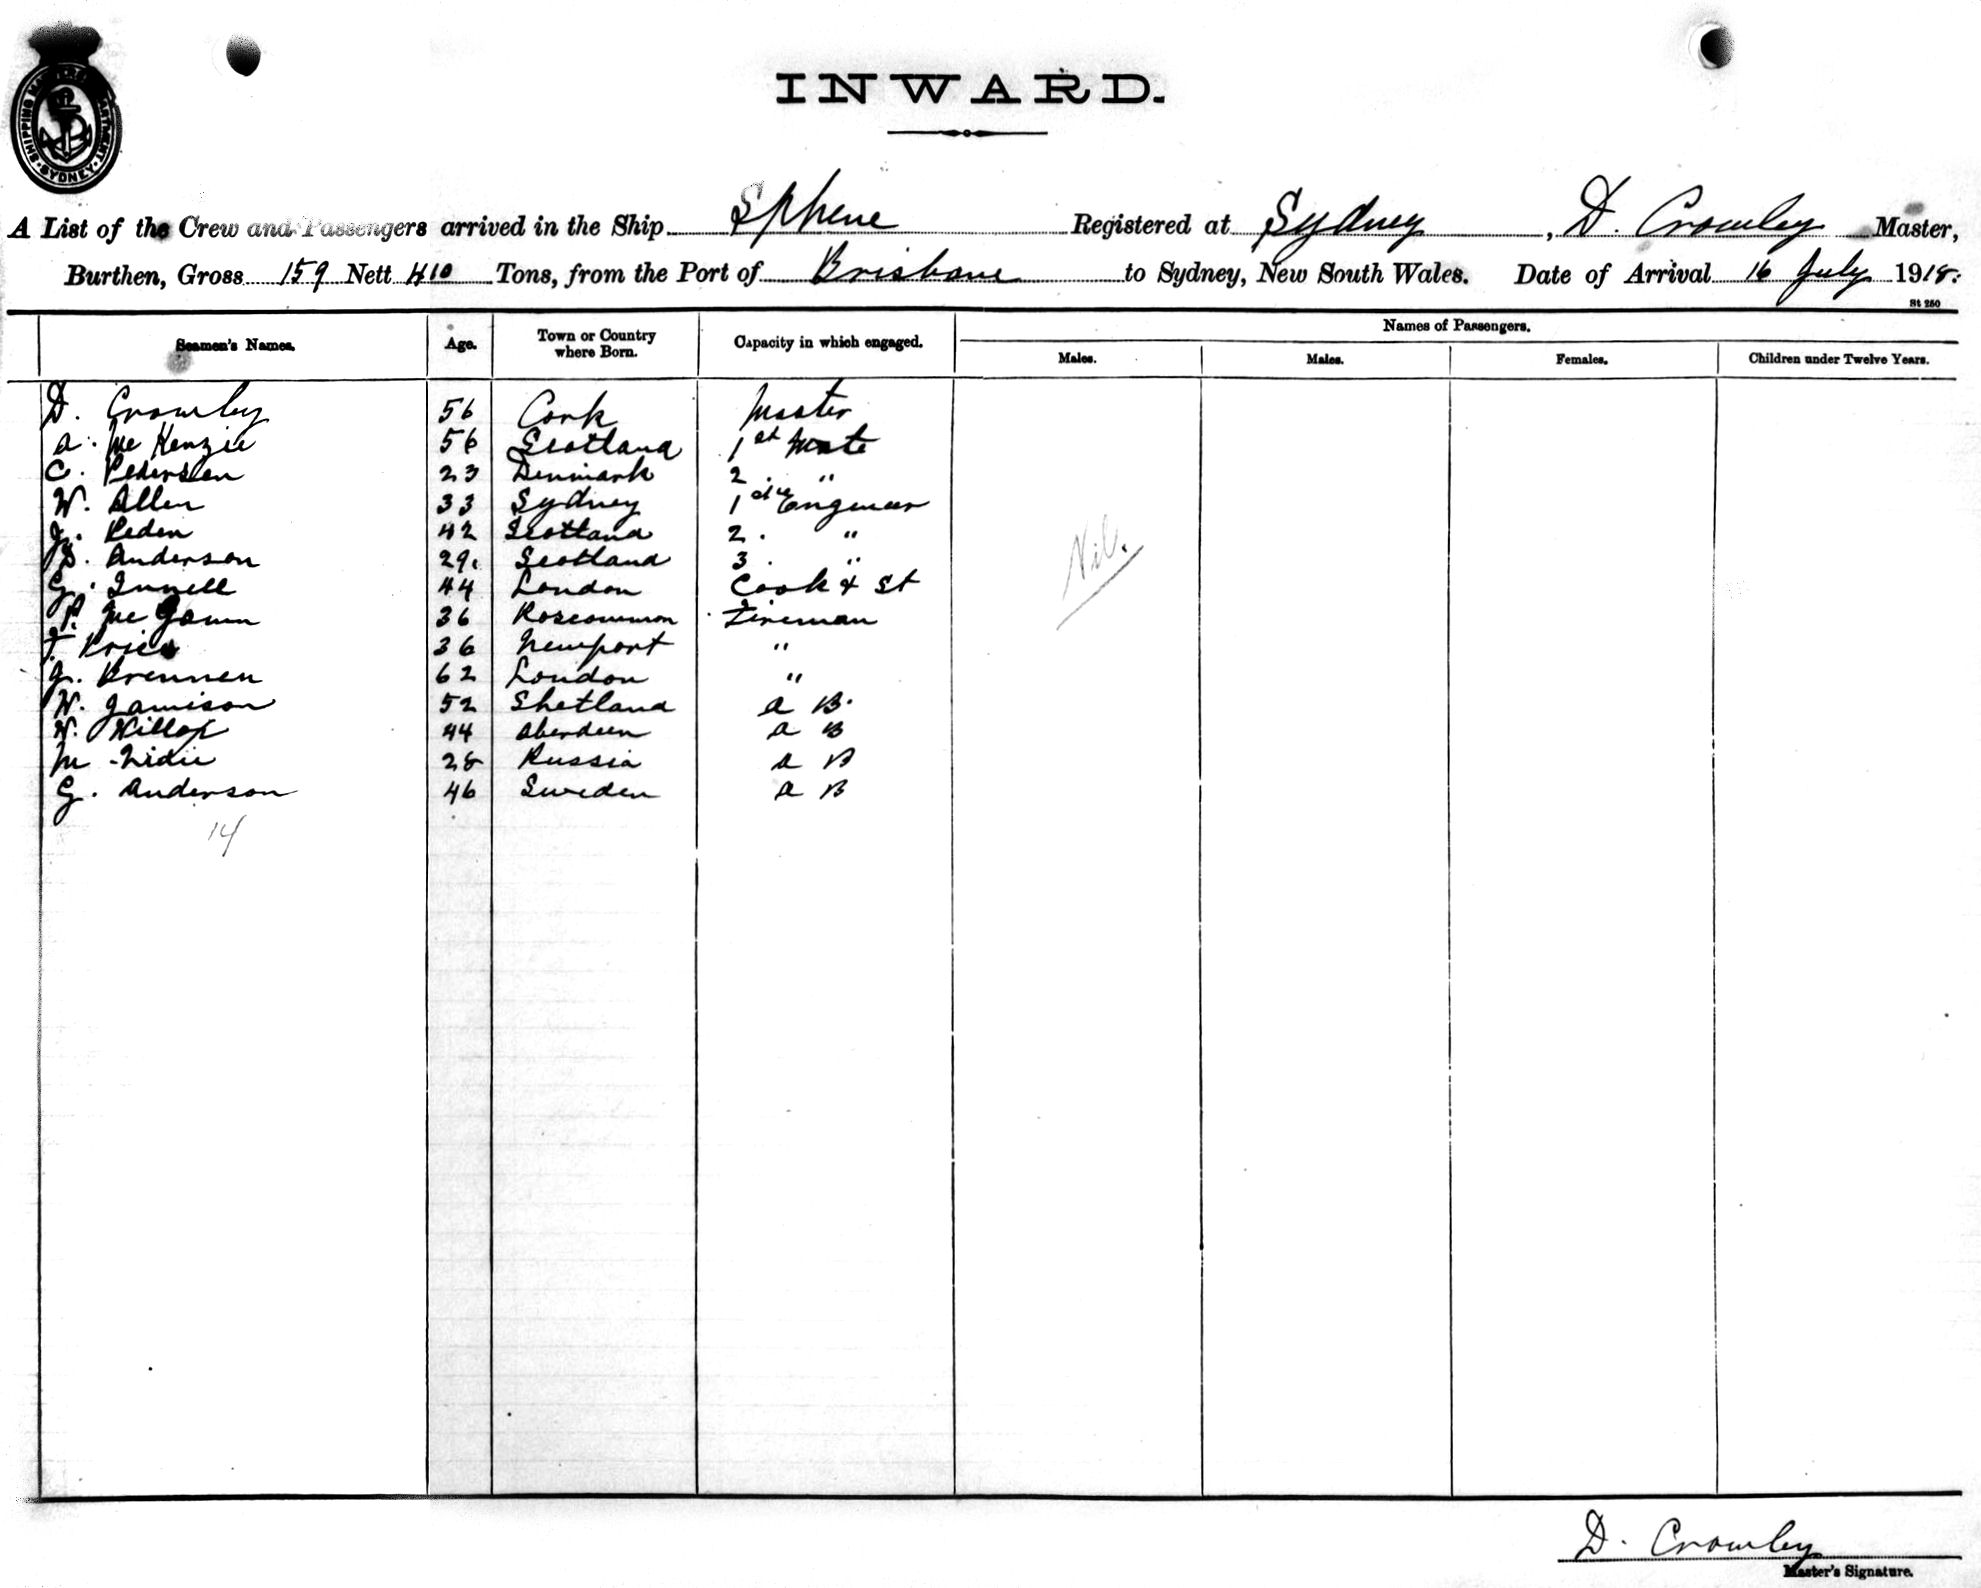 SHIPPING MASTER'S DEPARTMENT · SYDNEY ·
INWARD.
A List of the Crew and Passengers arrived in the Ship Sphene Registered at Sydney, D. Crowley Master,
Burthen, Gross 159 Nett 410 Tons, from the Port of Brisbane to Sydney, New South Wales. Date of Arrival 16 July 1918.
St 250
Seamen's Names. Age. Town or Country where Born. Capacity in which engaged. Names of Passengers.
Males. Males. Females. Children under Twelve Years.
D. Crowley 56 Cork Master
A. McKenzie 56 Scotland 1st Mate
C. Pedersen 23 Denmark 2. "
W. Allen 33 Sydney 1st Engineer
J. Peden 42 Scotland 2. "
D. Anderson 29. Scotland 3. "
G. 44 London Cook & St
P. McGowan 36 Roscommon Fireman
T. Price 36 Newport "
J. Brennen 62 London "
W. Jamison 52 Shetland A B.
W. Killop 44 Aberdeen A B
M 28 Russia A B
G. Anderson 46 Sweden A B
14
Nil.
D. Crowley
Master's Signature.